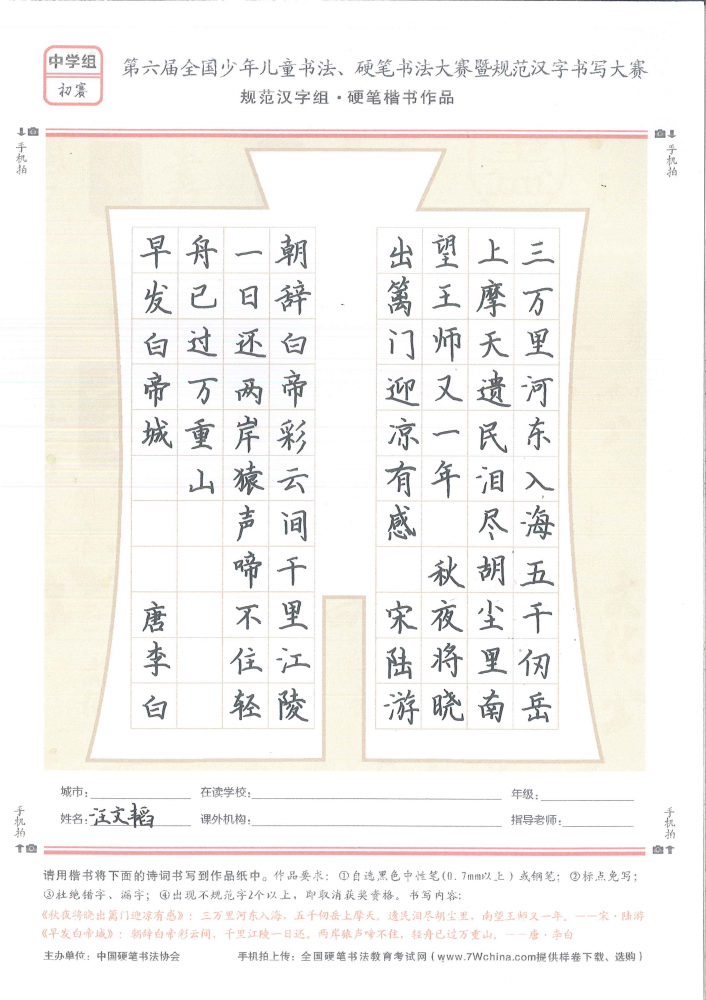 中学组
初赛
第六届全国少年儿童书法、硬笔书法大赛暨规范汉字书写大赛
规范汉字组·硬笔楷书作品
手机拍
手机拍
三万里河东入海五千仞岳
上摩天遗民泪尽胡尘里南
望王师又一年 秋夜将晓
出篱门迎凉有感 宋陆游
朝辞白帝彩云间千里江陵
一日还两岸猿声啼不住轻
舟已过万重山
早发白帝城 唐李白
手机拍
手机拍
城市: 在读学校: 年级:
姓名: 汪文韬 课外机构: 指导老师:
请用楷书将下面的诗词书写到作品纸中。作品要求：①自选黑色中性笔(0.7mm以上)或钢笔；②标点免写；
③杜绝错字、漏字；④出现不规范字2个以上，即取消获奖资格。书写内容：
《秋夜将晓出篱门迎凉有感》：三万里河东入海，五千仞岳上摩天。遗民泪尽胡尘里，南望王师又一年。——宋·陆游
《早发白帝城》：朝辞白帝彩云间，千里江陵一日还。两岸猿声啼不住，轻舟已过万重山。——唐·李白
主办单位：中国硬笔书法协会 手机拍上传：全国硬笔书法教育考试网(www.7Wchina.com提供样卷下载、选购)